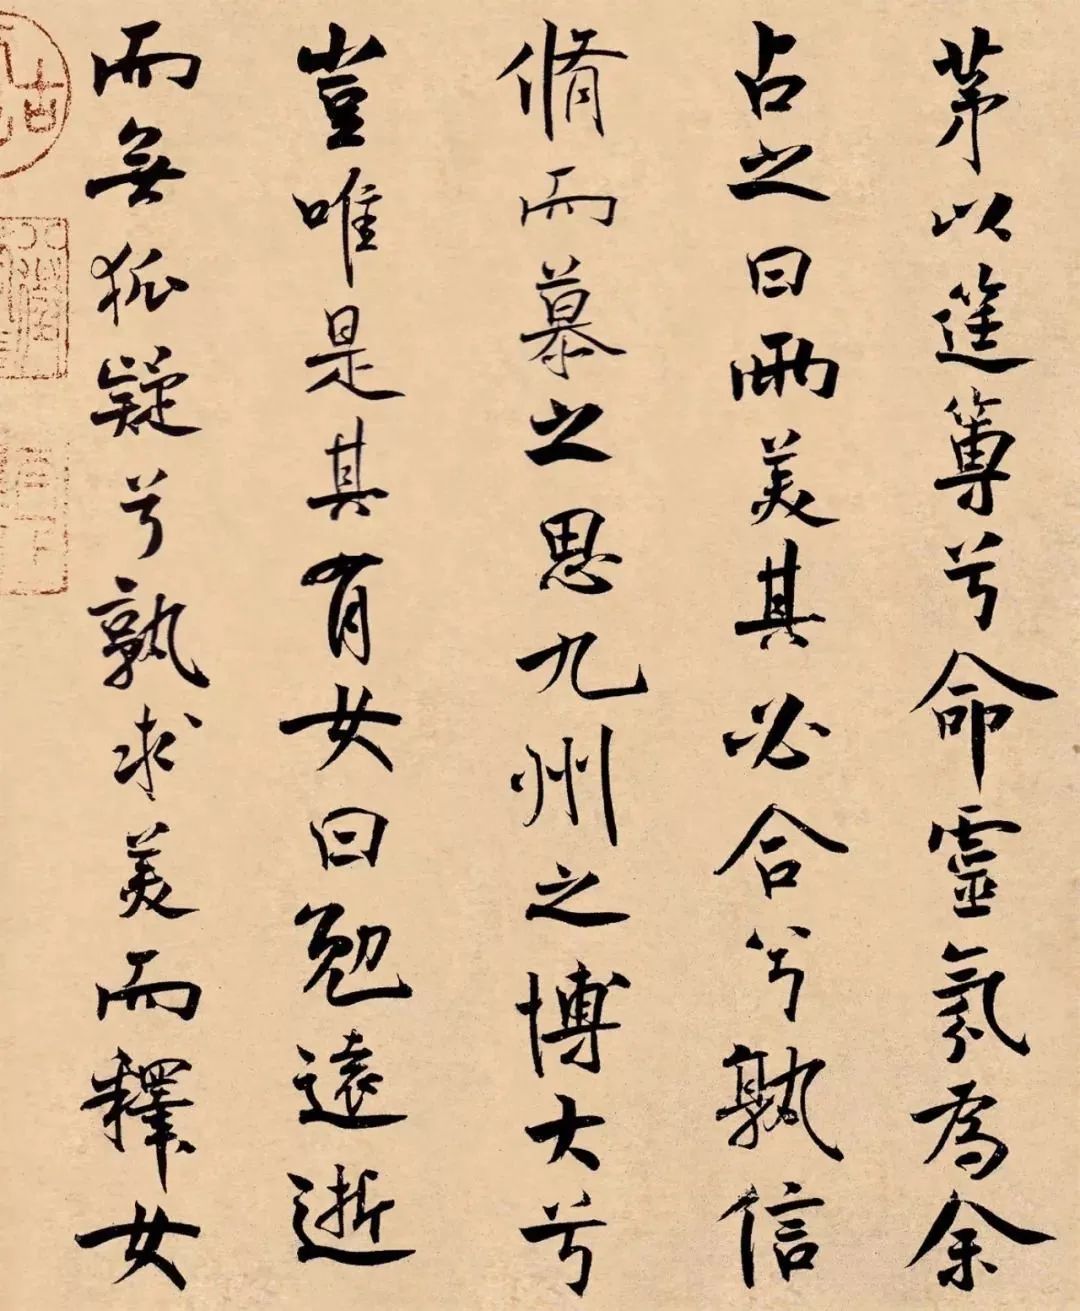 茅以筳篿兮命靈氛為余
占之曰兩美其必合兮孰信
脩而慕之思九州之博大兮
豈唯是其有女曰勉遠逝
而無狐疑兮孰求美而釋女